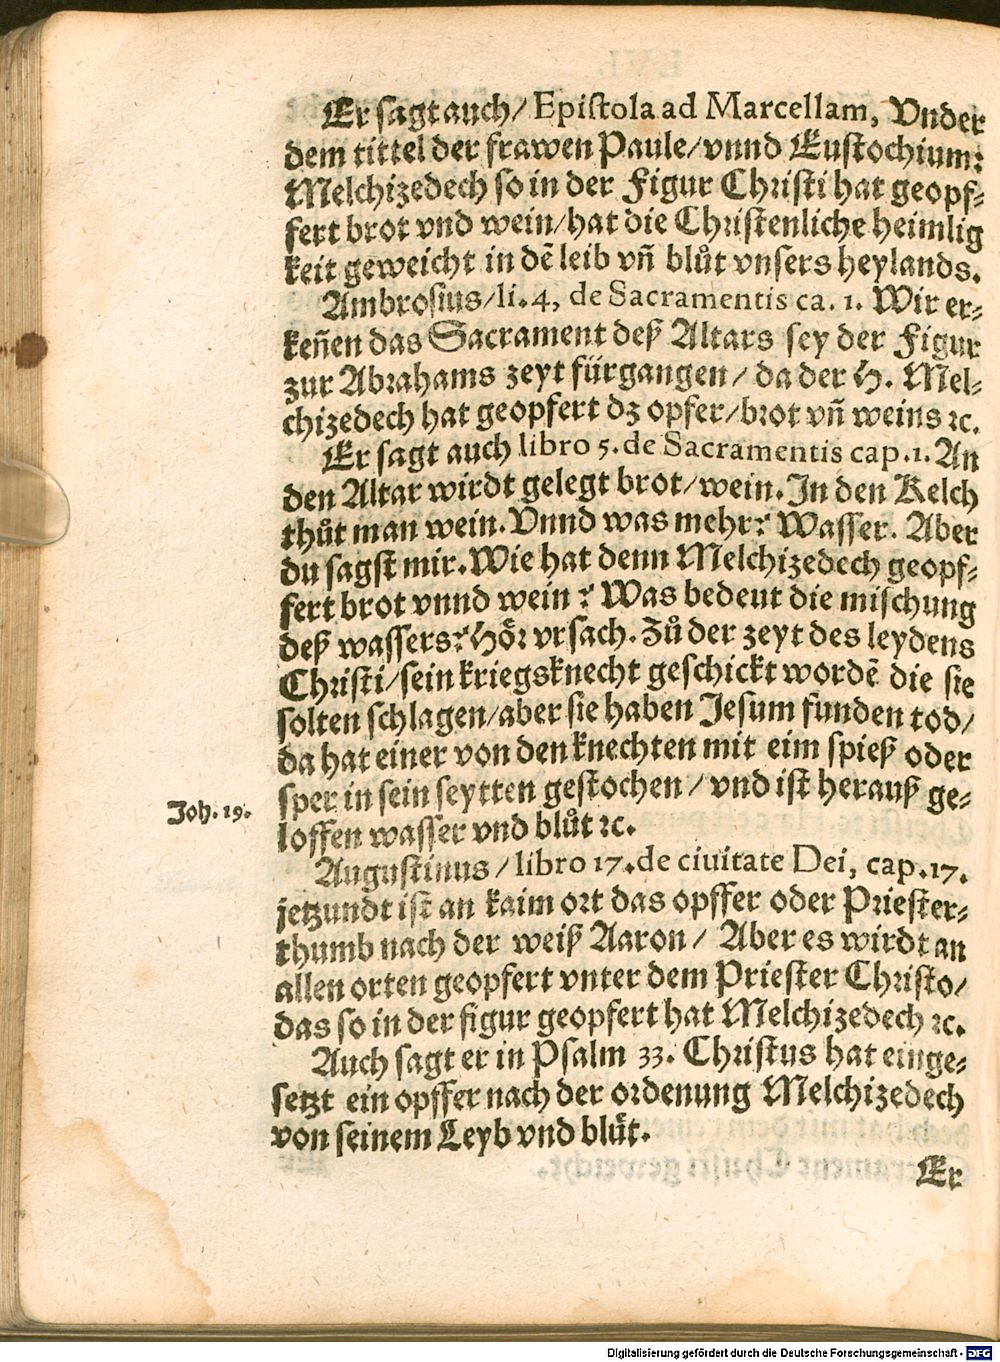 Er sagt auch/ Epistola ad Marcellam, Vnder
dem tittel der frawen Paule/vnnd Eustochium:
Melchizedech so in der Figur Christi hat geopf⸗
fert brot vnd wein/hat die Christenliche heimlig
keit geweicht in dẽ leib vñ blůt vnsers heylands.
Ambrosius/li. 4, de Sacramentis ca. 1. Wir er⸗
keñen das Sacrament deß Altars sey der Figur
zur Abrahams zeyt fürgangen/ da der H. Mel⸗
chizedech hat geopfert dz opfer/brot vñ weins ꝛc.
Er sagt auch libro 5. de Sacramentis cap.1. An
den Altar wirdt gelegt brot/wein. In den Kelch
thůt man wein. Vnnd was mehr? Wasser. Aber
du sagst mir. Wie hat denn Melchizedech geopf⸗
fert brot vnnd wein? Was bedeut die mischung
deß wassers? Hör vrsach. Zů der zeyt des leydens
Christi/sein kriegsknecht geschickt wordẽ die sie
solten schlagen/aber sie haben Jesum funden tod/
da hat einer von den knechten mit eim spieß oder
Joh. 19.
sper in sein seytten gestochen/ vnd ist herauß ge⸗
loffen wasser vnd blůt ꝛc.
Augustinus/ libro 17. de ciuitate Dei, cap. 17.
jetzundt ist an kaim ort das opffer oder Priester⸗
thumb nach der weiß Aaron/ Aber es wirdt an
allen orten geopfert vnter dem Priester Christo/
das so in der figur geopfert hat Melchizedech ꝛc.
Auch sagt er in Psalm 33. Christus hat einge⸗
setzt ein opffer nach der ordenung Melchizedech
von seinem Leyb vnd blůt.
Er
Digitalisierung gefördert durch die Deutsche Forschungsgemeinschaft - DFG